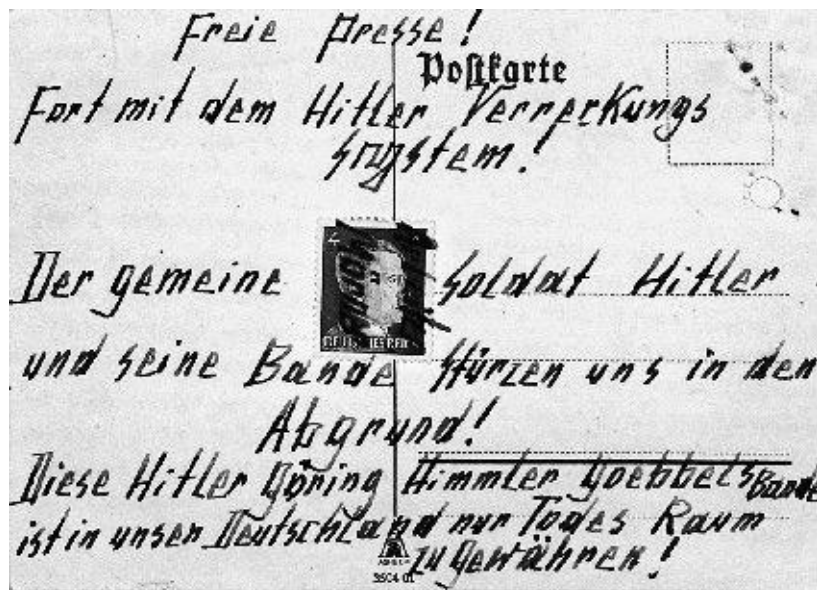 Freie Presse!
Postkarte
Fort mit dem Hitler Verreckungs
System!
Der gemeine Soldat Hitler
und seine Bande stürzen uns in den
Abgrund!
Diese Hitler Göring Himmler Goebbels Bande
ist in unser Deutschland nur Todes Raum
zu gewähren!
DEUTSCHES REICH